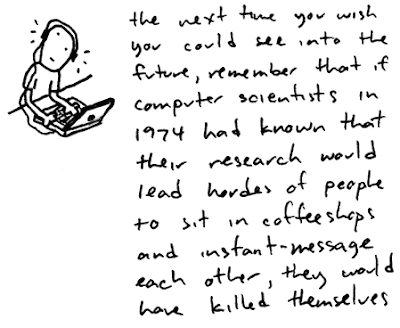 the next time you wish
you could see into the
future, remember that if
computer scientists in
1974 had known that
their research would
lead hordes of people
to sit in coffeeshops
and instant-message
each other, they would
have killed themselves